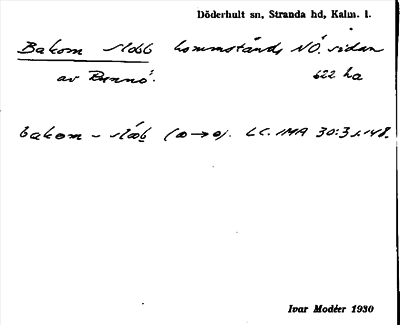 Döderhult sn, Stranda hd, Kalm. l.
Bakom slobb hommstånds NÖ. sidan
av Runnö. 622 ha
bakom - slåb (œ→ø). LC. IMA 30:3 s. 148.
Ivar Modéer 1930